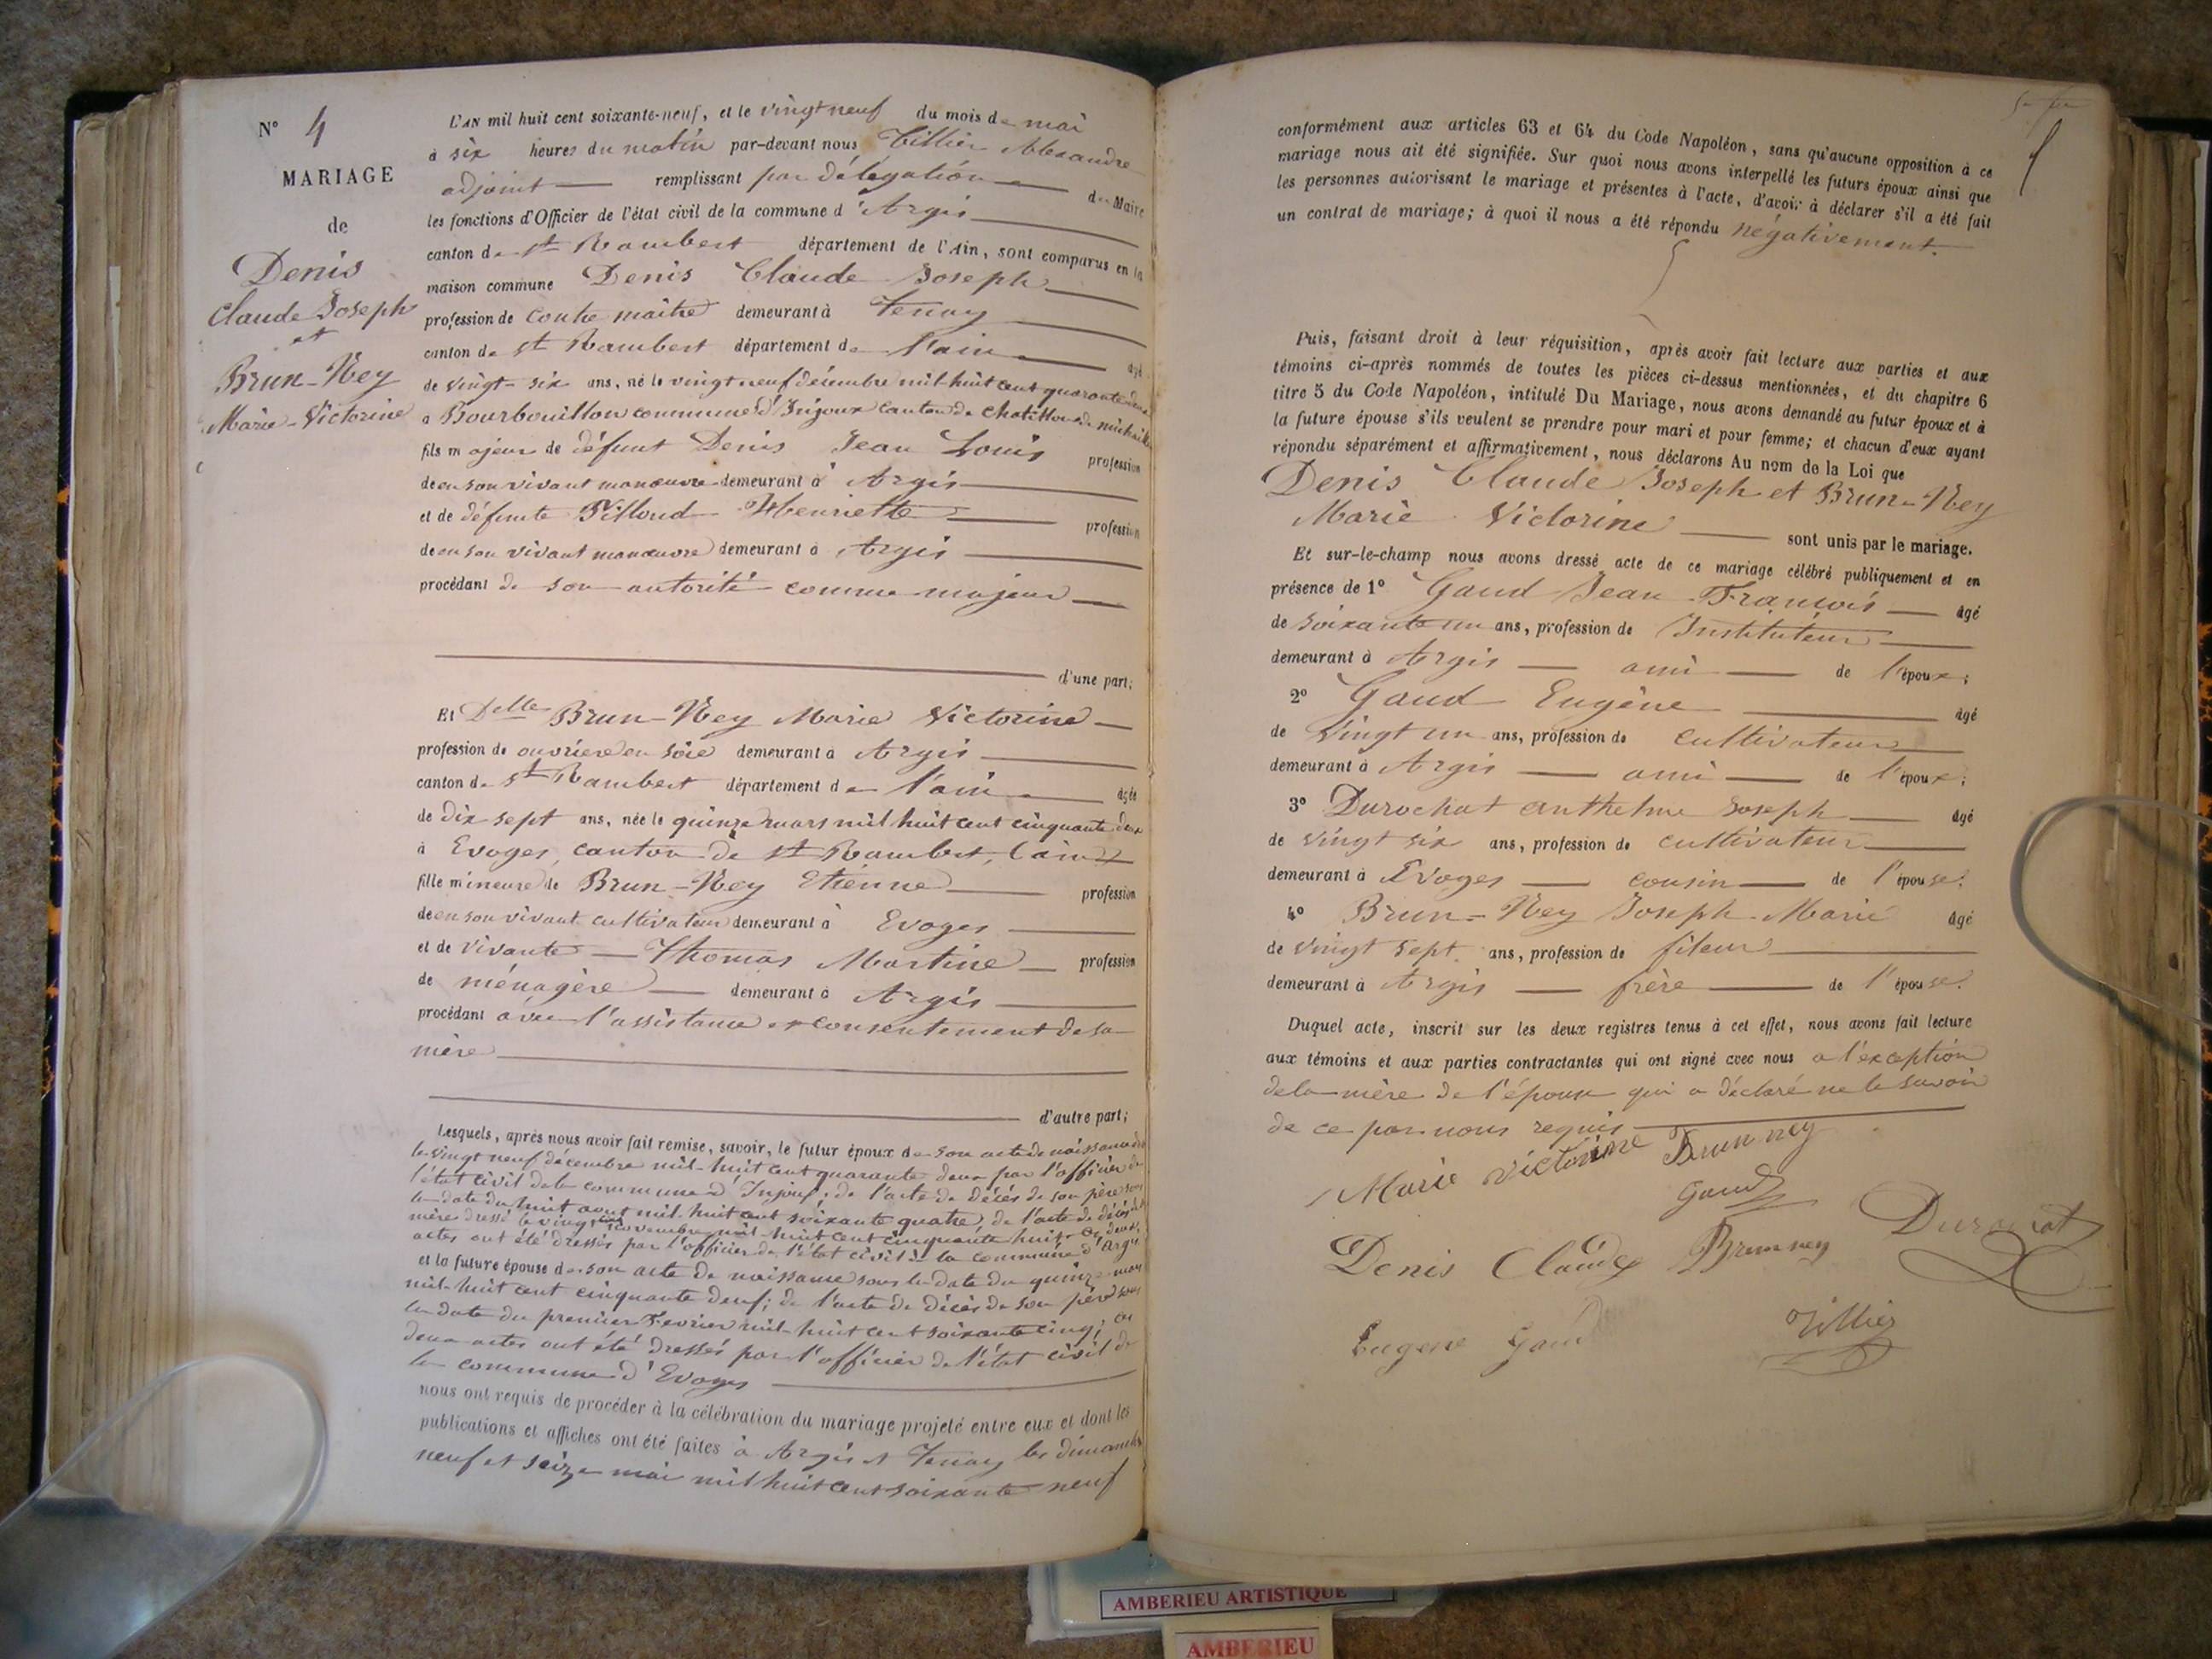 N° 4
MARIAGE
de
Denis
Claude Joseph
et
Brun-Ney
Marie-Victorine
L'AN mil huit cent soixante-neuf, et le vingt neuf du mois de mai
à six heures du matin par-devant nous Tillier Alexandre
adjoint remplissant par délégation du Maire
les fonctions d'Officier de l'état civil de la commune d'Argis
canton de St Rambert département de l'Ain, sont comparus en la
maison commune Denis Claude Joseph
profession de contre maître demeurant à Tenay
canton de St Rambert département de l'ain agé
de vingt-six ans, né le vingt neuf décembre mil huit cent quarante deux
a Bourbouillon commune d'Injoux canton de Chatillon de michaille
fils majeur de défunt Denis Jean Louis profession
de en son vivant manœuvre demeurant à Argis
et de défunte Pilloud Henriette profession
de en son vivant manœuvre demeurant à Argis
procédant de son autorité comme majeur
d'une part;
Et Delle Brun-Ney Marie Victorine
profession de ouvrière en soie demeurant à Argis
canton de St Rambert département de l'ain agée
de dix sept ans, née le quinze mars mil huit cent cinquante deux
à Evoges, canton de St Rambert, (ain)
fille mineure de Brun-Ney Etienne profession
de en son vivant cultivateur demeurant à Evoges
et de vivante Thomas Martine profession
de ménagère demeurant à Argis
procédant avec l'assistance et consentement de sa
mère
d'autre part;
Lesquels, après nous avoir fait remise, savoir, le futur époux de son acte de naissance du
le vingt neuf décembre mil-huit cent quarante deux par l'officier de
l'état civil de la commune d'Injoux; de l'acte de décès de son père sous
la date du huit aout mil-huit cent soixante quatre; de l'acte de décès de sa
mère dressé le vingt novembre mil-huit cent cinquante huit ces deux
actes ont été dressés par l'officier de l'état civil de la commune d'Argis
et la future épouse de son acte de naissance sous la date du quinze mars
mil-huit cent cinquante deux; de l'acte de décès de son père sous
la date du premier Fevrier mil-huit cent soixante cinq; ces
deux actes ont été dressés par l'officier de l'état civil de
la commune d'Evoges
nous ont requis de procéder à la célébration du mariage projeté entre eux et dont les
publications et affiches ont été faites à Argis et Tenay les dimanches
neuf et seize mai mil huit cent soixante neuf
conformément aux articles 63 et 64 du Code Napoléon, sans qu'aucune opposition à ce
mariage nous ait été signifiée. Sur quoi nous avons interpellé les futurs époux ainsi que
les personnes autorisant le mariage et présentes à l'acte, d'avoir à déclarer s'il a été fait
un contrat de mariage; à quoi il nous a été répondu négativement.
Puis, faisant droit à leur réquisition, après avoir fait lecture aux parties et aux
témoins ci-après nommés de toutes les pièces ci-dessus mentionnées, et du chapitre 6
titre 5 du Code Napoléon, intitulé Du Mariage, nous avons demandé au futur époux et à
la future épouse s'ils veulent se prendre pour mari et pour femme; et chacun d'eux ayant
répondu séparément et affirmativement, nous déclarons Au nom de la Loi que
Denis Claude Joseph et Brun-Ney
Marie Victorine sont unis par le mariage.
Et sur-le-champ nous avons dressé acte de ce mariage célébré publiquement et en
présence de 1° Gaud Jean François agé
de soixante un ans, profession de Instituteur
demeurant à Argis ami de l'époux;
2° Gaud Eugène agé
de vingt un ans, profession de cultivateur
demeurant à Argis ami de l'époux;
3° Durochat anthelme Joseph agé
de vingt six ans, profession de cultivateur
demeurant à Evoges cousin de l'épouse.
4° Brun-Ney Joseph-Marie agé
de vingt sept ans, profession de fileur
demeurant à Argis frère de l'épouse.
Duquel acte, inscrit sur les deux registres tenus à cet effet, nous avons fait lecture
aux témoins et aux parties contractantes qui ont signé avec nous a l'exception
de la mère de l'épouse qui a déclaré ne le savoir
de ce par nous requis
Marie victorine Brun ney
Gaud
Denis Claude Brun ney Durochat
Eugene Gaud Tillier
AMBERIEU ARTISTIQUE
AMBERIEU